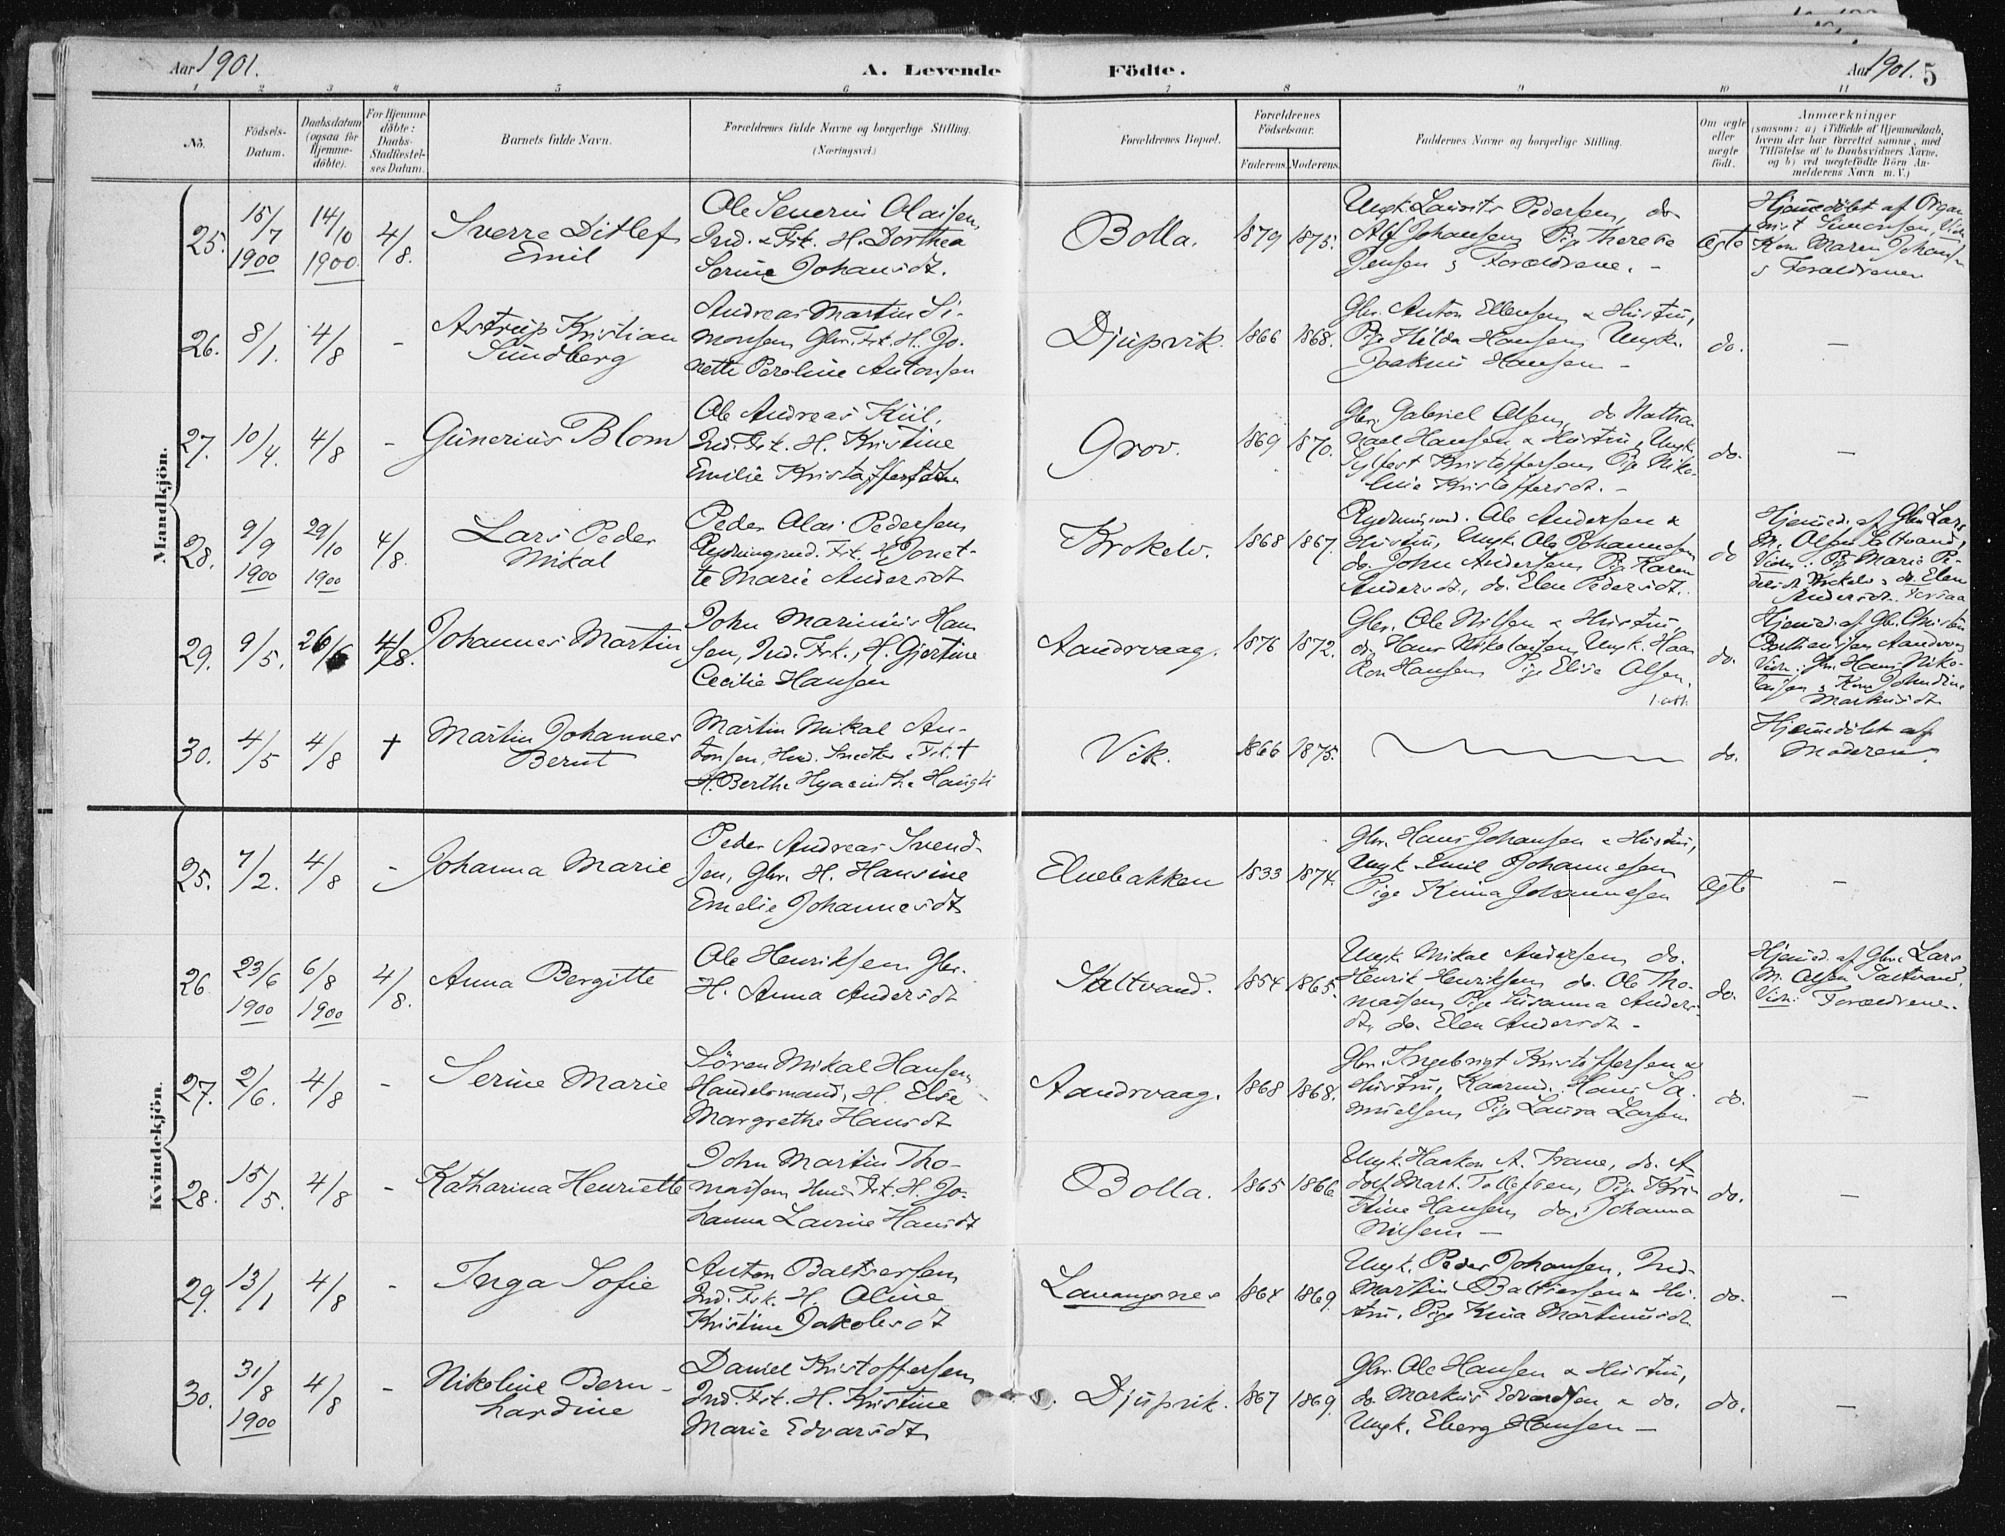 Aar 1901.
A. Levende Födte.
Aar 1901. 5
1 2 3 4 5 6 7 8 9 10 11
No.
Födsels-
Datum.
Daabsdatum
(ogsaa for
Hjemme-
döbte).
For Hjemme-
döbte:
Daabs-
Stadfæstel-
ses Datum.
Barnets fulde Navn.
Forældrenes fulde Navne og borgerlige Stilling.
(Næringsvei.)
Forældrenes Bopæl.
Forældrenes
Födselsaar.
Faderens. Moderens.
Faddernes Navne og borgerlige Stilling.
Om ægte
eller
uægte
født.
Anmærkninger
(saasom: a) (Tilfælde af Hjemmedaab,
hvem der har forrettet samme, med
Tilföielse af to Daabsvidners Navne,
og b) ved uægtefödte Börn An-
melderens Navn m. V.)
Mandkjön.
25.
15/7
1900
14/10
1900
4/8.
Sverre Ditlef
Emil
Ole Severin Olaisen
Ind. & Fsk. H. Dorthea
Serine Johansdt.
Bolla.
1879 1875.
Ungk. Laurits Pedersen, do
Alf Johansen, Pige Therese
Jensen & Forældrene. -
ægte
Hjemmedöbt af Organ
nist Simonsen, Vidn
Kone Maren Johansen
& Forældrene
26.
8/1.
4/8
-
Astrup Kristian
Sundberg
Andreas Martin Si-
monsen Gbr. Fsk. H. Jo-
nette Peroline Antonsen
Djupvik.
1866 1868.
Gbr. Anton Ellevsen & Hustru,
Pige Hilda Hansen, Ungk.
Joakim Hansen -
do.
-
27.
10/4.
4/8
-
Gunerius Blom
Ole Andreas Kiil,
Ind. Fsk. H. Kristine
Emilie Kristoffersdtr
Grov.
1869 1870.
Gbr. Gabriel Olsen, do Natha
nael Hansen & Hustru, Ungk.
Sylfest Kristoffersen, Pige Niko-
line Kristoffersdt. -
do.
-
28.
9/9
1900
29/10
1900
4/8.
Lars Peder
Mikal
Peder Olai Pedersen
Rydningsmd. Fsk. H. Jonet-
te Marie Andersdt
Krokelv.
1868 1867.
Rydnmsmd. Ole Andersen &
Hustru, Ungk. Ole Johannesen
do. John Andersen, Pige Karen
Andersdt., do. Elen Pedersdt.
do
Hjemmed. af Gbr. Lars
M. Olsen Saltvand,
Vidn. Pige Marie Pe-
dersdt Krokelv & do. Elen
Andersdt.
29.
9/5.
26/6
4/8.
Johannes Martin
John Marinius Han
sen, Ind. Fsk., H. Gjertine
Cecilie Hansen
Aandrvaag.
1876 1872.
Gbr. Ole Nilsen & Hustru,
do Hans Nikolaisen, Ungk. Haa
kon Hansen, Pige Elise Olsen.
do.
Hjemmed. af Gbr. Christen
Aandrvaag
Vidn. Gbr. Hans Niko-
laisen & Kone Johndine
Markusdt.
30.
4/5
4/8
†
Martin Johannes
Bernt
Martin Mikal An-
tonsen, Hmd. Snedker & Fsk. †
H. Berthe Hyacinthe Haugli
Vik.
1866 1875.
do.
Hjemmedöbt af
Moderen.
Kvindekjön.
25.
7/2.
4/8
-
Johanna Marie
Peder Andreas Svend-
sen, Gbr. H. Hansine
Emelie Johannesdt.
Elvebakken
1833 1874.
Gbr. Hans Johansen & Hustru,
Ungk. Emil Johannesen
Pige Kinna Johannesen
ægte
-
26.
23/6
1900
6/8
1900
4/8.
Anna Bergitte
Ole Henriksen Gbr.
H. Anna Andersdt
Saltvand.
1854 1865.
Ungk. Mikal Andersen, do.
Henrik Henriksen do. Ole Tho-
massen, Pige Susanna Anders-
dt., do. Elen Andersdt. -
do.
Hjemmed. af Gbr. Lars
M. Olsen Saltvand.
Vidn. Forældrene.
27.
2/6.
4/8
-
Serine Marie
Sören Mikal Hansen,
Handelsmand, H. Else
Margrethe Hansdt
Aandrvaag.
1868 1868.
Gbr. Ingebrigt Kristoffersen &
Hustru, Kaarmd. Hans Sa-
muelsen, Pige Laura Larsen
do.
-
28.
15/5.
4/8
-
Katharina Henriette
John Martin Tho-
massen, Hmd. Fsk. H. Jo-
hanna Lavine Hansdt
Bolla.
1865 1866
Ungk. Haakon A. Krane, do. A
dolf Mart. Tollefsen, Pige Kri
stine Hansen, do. Johanna
Nilsen -
do.
-
29.
13/1
4/8
-
Inga Sofie
Anton Baltsersen
Ind. Fsk. H. Oline
Kristine Jakobsdt
Lavangsnes
1864 1869.
Ungk. Peder Johansen, Ind.
Martin Baltsersen & Hu-
stru, Pige Kina Martinusdt.
do.
-
30.
31/8
1900
4/8
-
Nikoline Bern-
hardine
Daniel Kristoffersen,
Ind. Fsk. H. Kristine
Marie Edvarsdt.
Djupvik.
1867 1869.
Gbr. Ole Hansen & Hustru,
do. Markus Edvardsen & do.
Ungk. Eberg Hansen -
do.
-